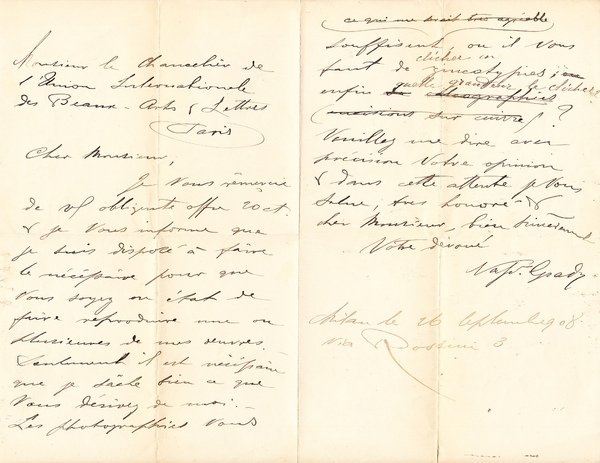 Monsieur le Chancelier de
l'Union Internationale
des Beaux-Arts & Lettres
Paris
Cher Monsieur,
Je vous remercie
de obligeante offre 20 ct.
& je vous informe que
je suis disposé à faire
le nécéssaire pour que
vous soyez en état de
faire reproduire une ou
plusieures de mes œuvres.
Seulement il est nécéssaire
que je sache bien ce que
vous désirez de moi.—
Les photographies vous
ce qui me serait très agréable
souffisent ou il vous
clicher en
faut de zincotypes; ou
quelle grandeur le clicher
enfin
incisions sur cuivre?
Veuillez me dire avec
précision votre opinion
& dans cette attente je vous
salue, très honoré &
cher Monsieur, bien sincèrement
Votre dévoué
Nap. Grady
Milan le 26 Septembre 08.
Via Rossini 3